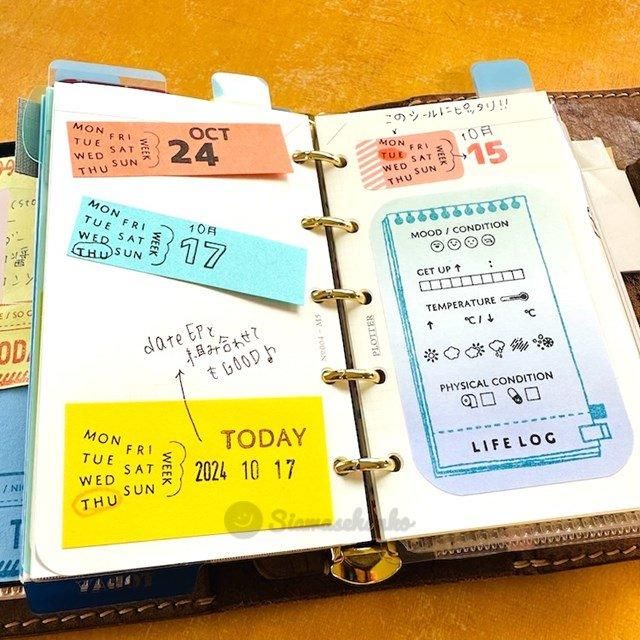 MON
TUE FRI
WED SAT
THU SUN
WEEK
OCT
24
MON
TUE FRI
WED SAT
THU SUN
WEEK
10月
17
dateEPと
組み合わせて
もGOOD♪
MON
TUE FRI
WED SAT
THU SUN
WEEK
TODAY
2024 10 17
このシールにピッタリ!!
MON
TUE FRI
WED SAT
THU SUN
WEEK
10月
15
PLOTTER
MOOD / CONDITION
GET UP ↑ :
TEMPERATURE
↑ ℃/↓ ℃
PHYSICAL CONDITION
LIFE LOG